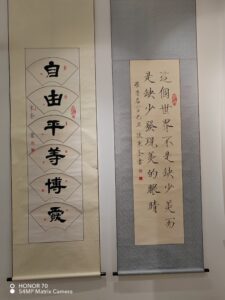 自由平等博愛
這個世界不是缺少美而
是缺少發現美的眼睛
HONOR 70
54MP Matrix Camera